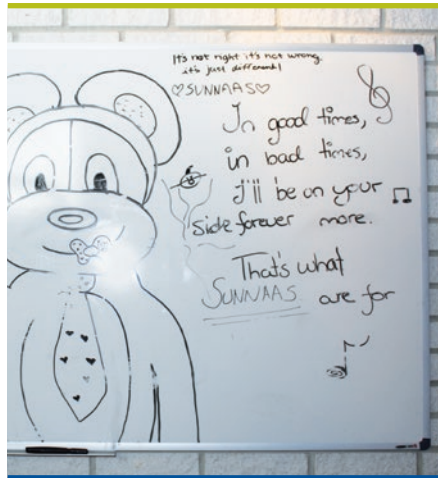 It's not right it's not wrong.
it's just different!
♡SUNNAAS♡
In good times,
in bad times,
I'll be on your
side forever more.
That's what
SUNNAAS are for